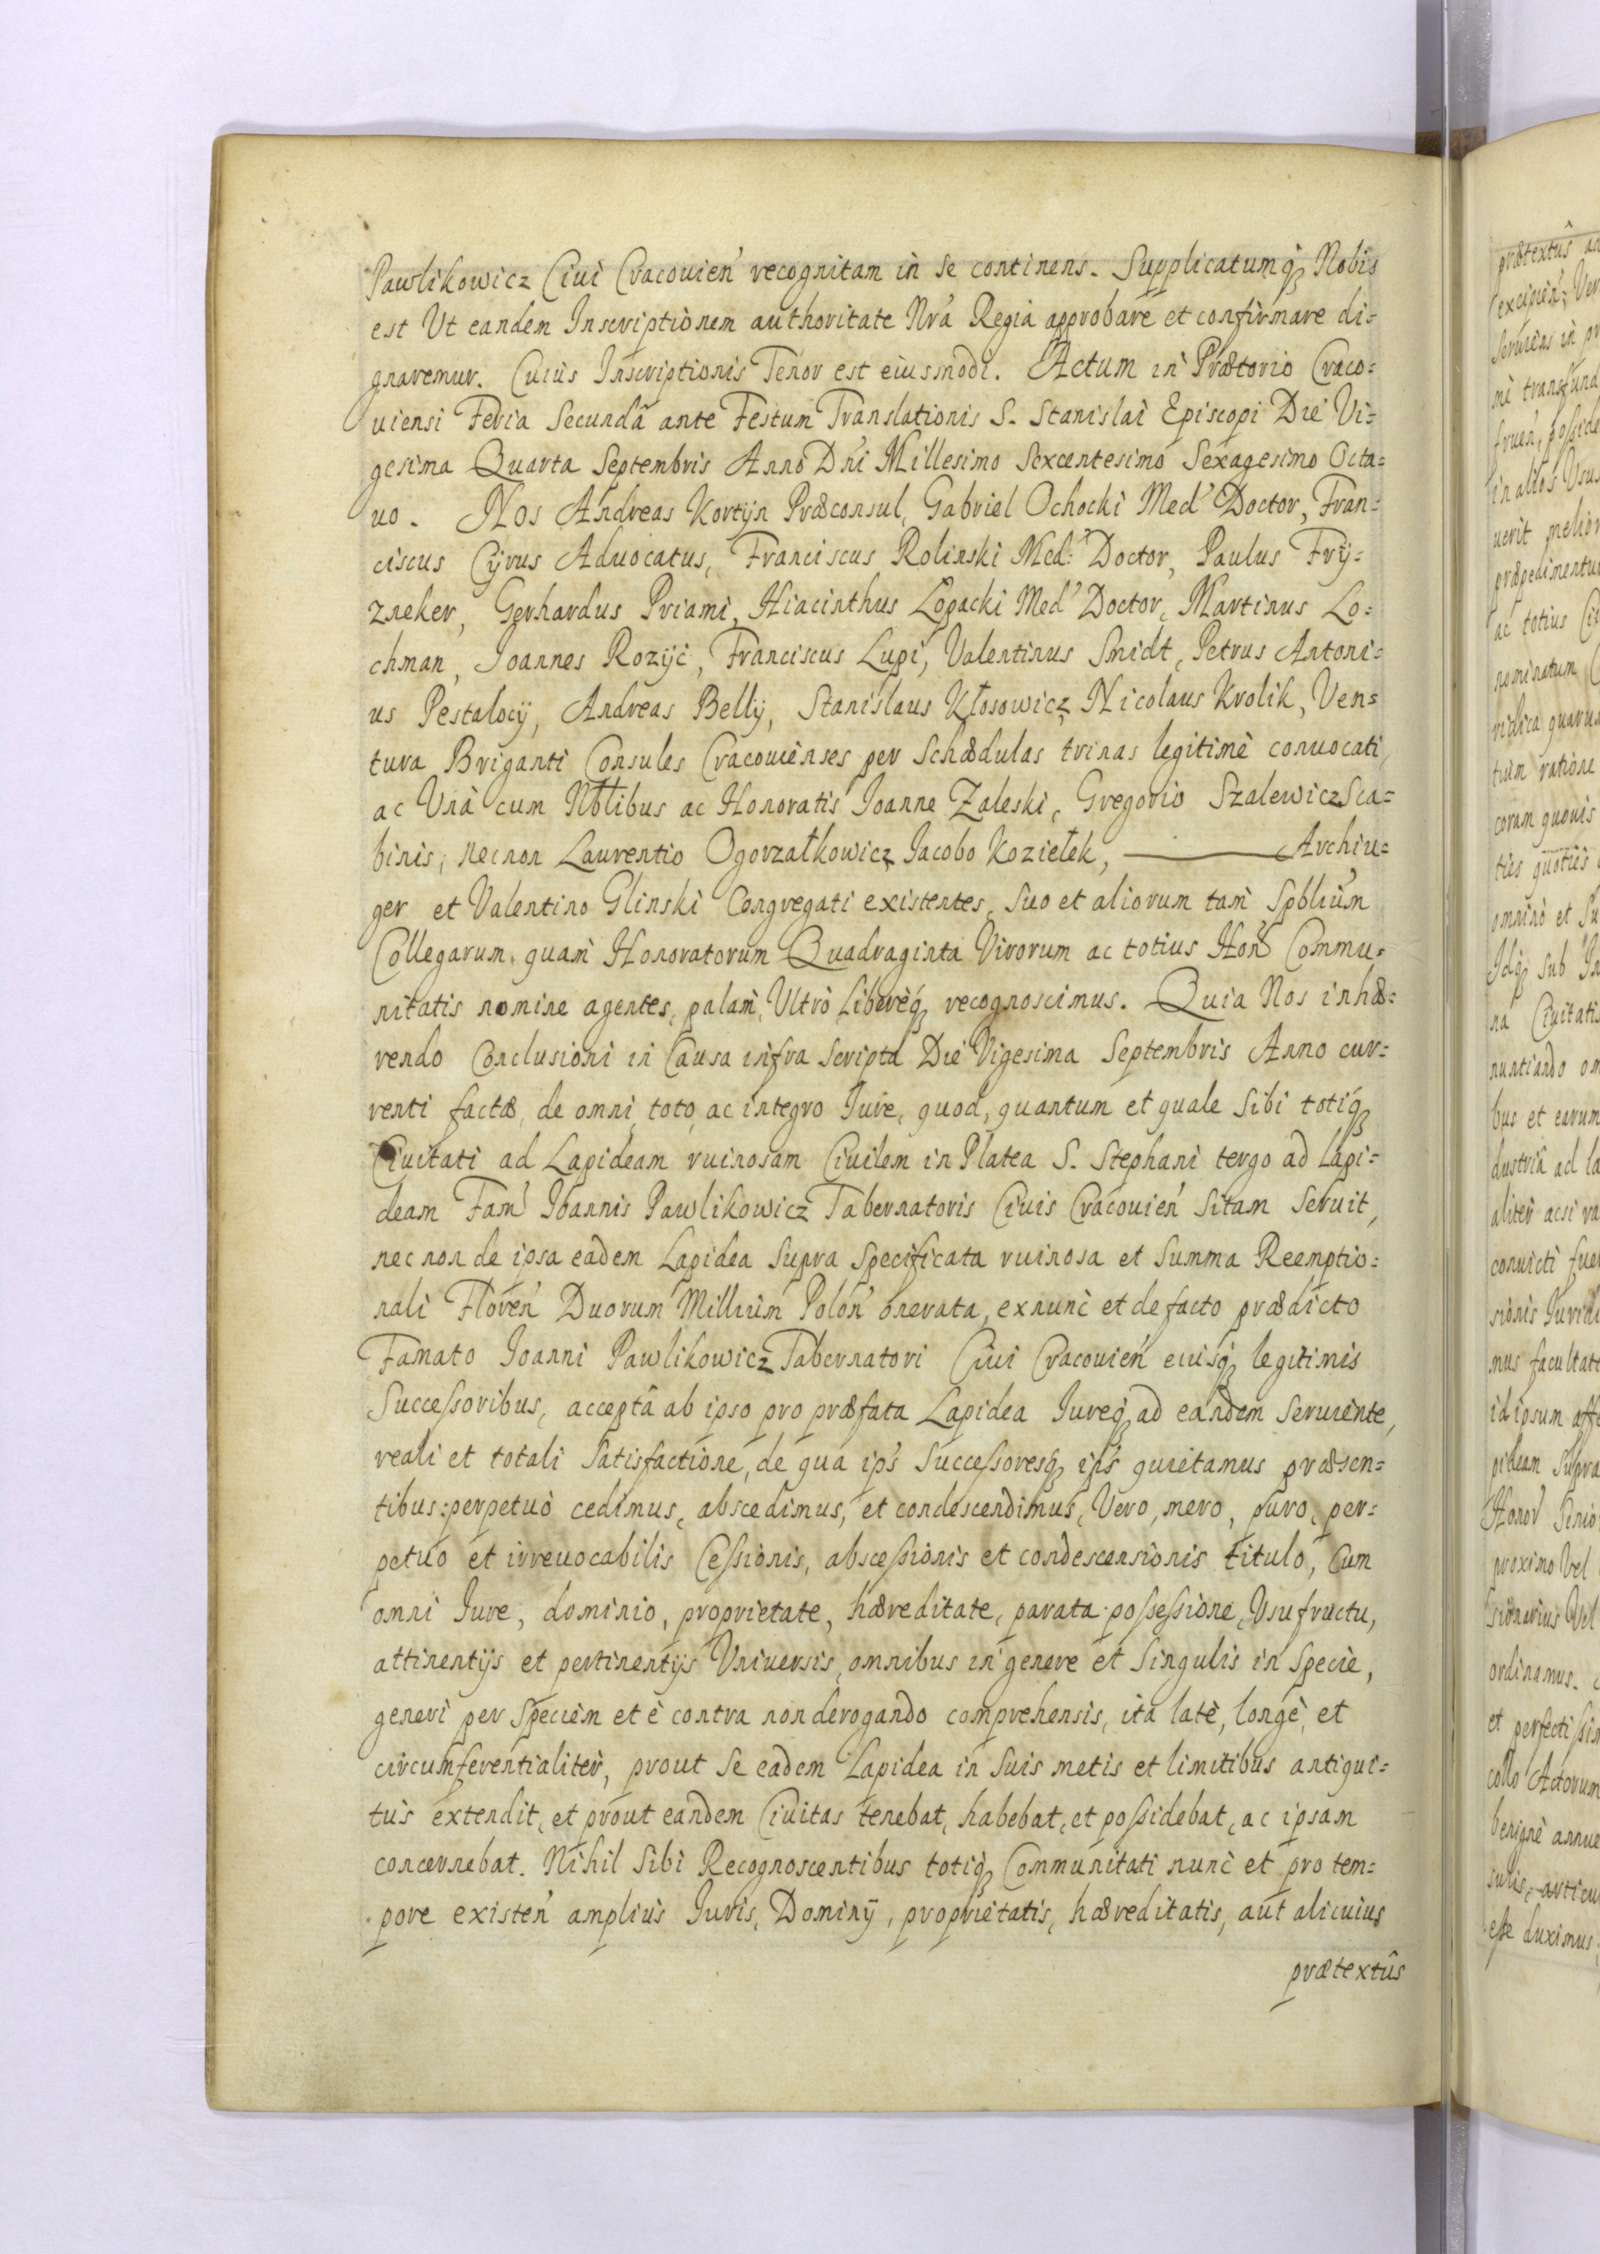 Pawlikowicz Ciui Cracouień recognitam in se continens. Supplicatumq3 Nobis
est Ut eandem Inscriptionem authoritate Nrâ Regia approbare et confirmare di=
gnaremur. Cuius Inscriptionis Tenor est eiusmodi. Actum in Prætorio Craco=
uiensi Feria Secundâ ante Festum Translationis S. Stanislai Episcopi Die Vi=
gesima Quarta Septembris Anno Dńi Millesimo Sexcentesimo Sexagesimo Octa=
uo. Nos Andreas Kortÿn Præconsul, Gabriel Ochocki Med' Doctor, Fran=
ciscus Cÿrus Aduocatus, Franciscus Rolinski Med: Doctor, Paulus Frÿ=
zneker, Gerhardus Priami, Hiacinthus Łopacki Med' Doctor, Martinus Lo=
chman, Joannes Rozÿc, Franciscus Lupi, Valentinus Smidt, Petrus Antoni=
us Pestalocÿ, Andreas Bellÿ, Stanislaus Kłosowicz, Nicolaus Krolik, Ven=
tura Briganti Consules Cracouienses per Schædulas trinas legitimè conuocati,
ac Unà cum Nbłibus ac Honoratis Joanne Zaleski, Gregorio Szalewicz Sca=
binis, necnon Laurentio Ogorzałkowicz, Jacobo Koziełek, ——— Archiu=
ger et Valentino Glinski Congregati existentes, Suo et aliorum tam Spbliúm
Collegarum, quam Honoratorum Quadraginta Virorum ac totius Hon Commu=
nitatis nomine agentes, palam, Ultrò, Liberèq3 recognoscimus. Quia Nos inhæ=
rendo Conclusioni in Causa infra scripta Die Vigesima Septembris Anno cur=
renti factæ, de omni, toto, ac integro Jure, quod, quantum et quale Sibi totiq3
Ciuitati ad Lapideam ruinosam Ciuilem in Platea S. Stephani tergo ad lapi=
deam Fam' Joannis Pawlikowicz Tabernatoris Ciuis Cracouień Sitam Seruit,
nec non de ipsa eadem Lapidea Supra specificata ruinosa et Summa Reemptio=
nali Floreń Duorum Millium Poloń onerata, exnunc et de facto prædicto
Famato Joanni Pawlikowicz Tabernatori Ciui Cracouień eiusq3 legitimis
Successoribus, acceptâ ab ipso pro præfata Lapidea Jureq3 ad eandem Seruiente,
reali et totali Satisfactione, de qua ip's Successoresq3 ip's quietamus præsen=
tibus: perpetuò cedimus, abscedimus, et condescendimus, Vero, mero, puro, per=
petuo et irreuocabilis Cessionis, abscessionis et condescensionis titulo, Cum
omni Jure, dominio, proprietate, hæreditate, parata possessione, Usufructu,
attinentijs et pertinentijs Uniuersis, omnibus in genere et Singulis in Specie,
generi per speciem et è contra non derogando comprehensis, ita latè, longè, et
circumferentialiter, prout se eadem Lapidea in Suis metis et limitibus antiqui=
tùs extendit, et prout eandem Ciuitas tenebat, habebat, et possidebat, ac ipsam
concernebat. Nihil Sibi Recognoscentibus totiq3 Communitati nunc et pro tem=
pore existeń ampliùs Juris, Dominÿ, proprietatis, hæreditatis, aut alicuius
prætextûs